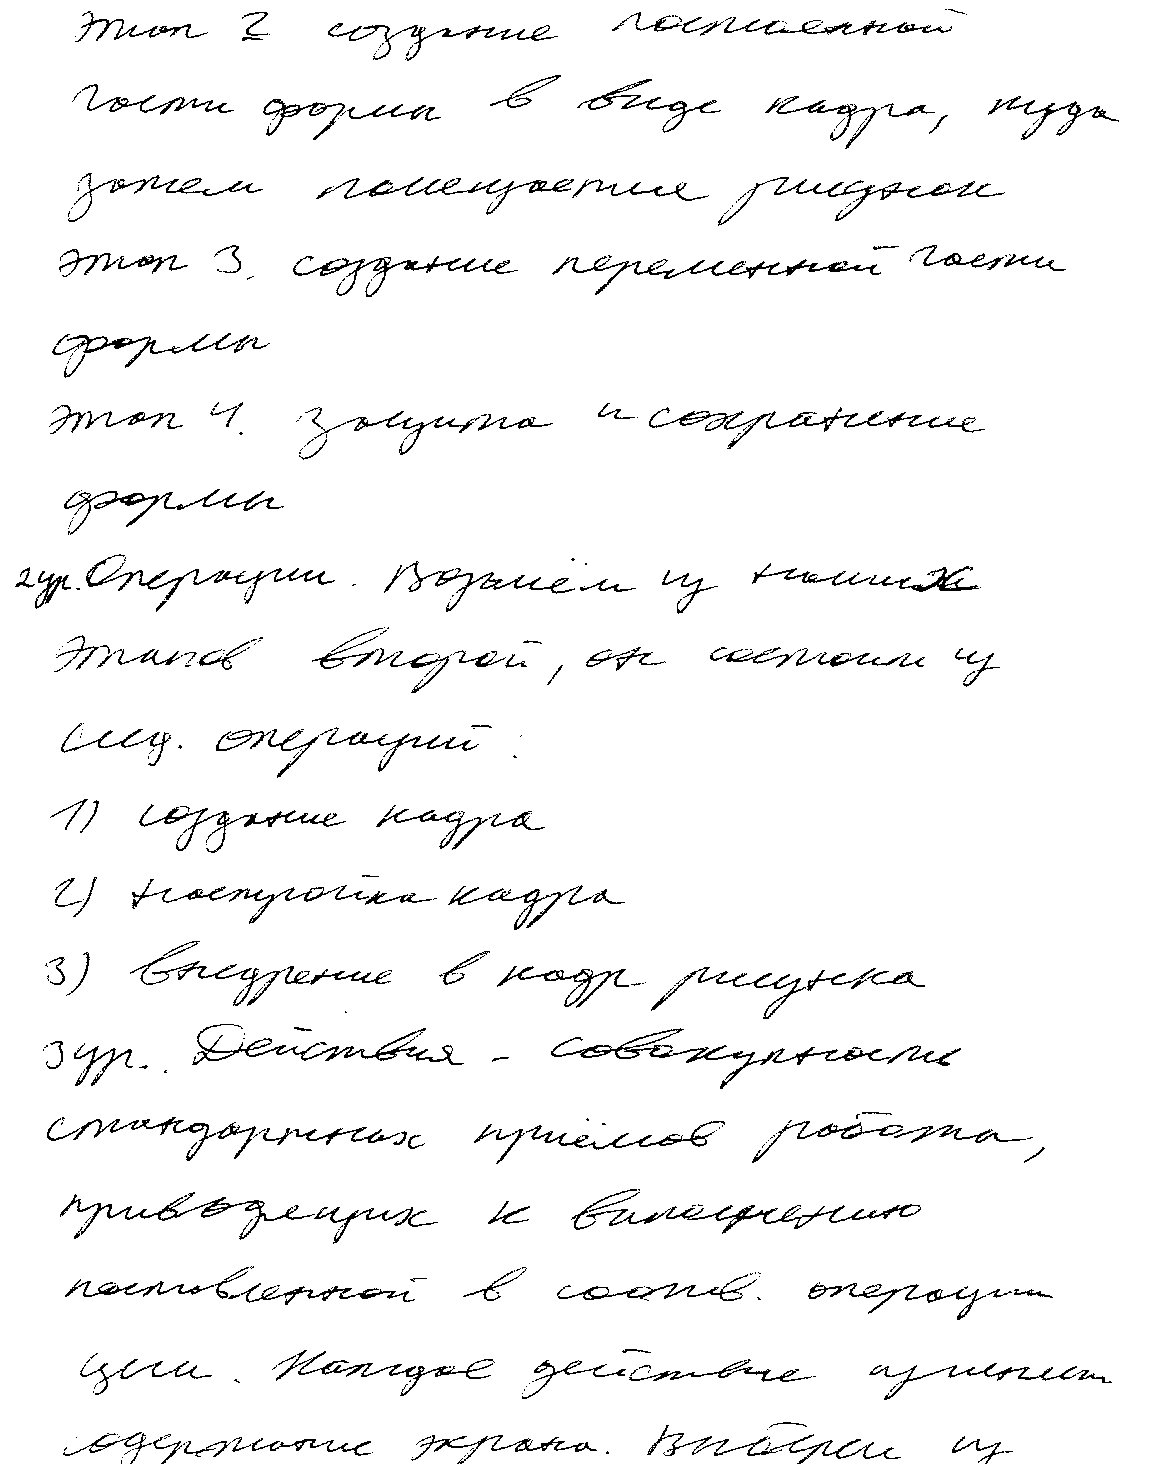 этап 2 создание постоенной
части формы в виде кадра, куда
затем помещается рисунок
этап 3. создание переменной части
формы
этап 4. Защита и сохранение
формы
2 ур. Операции. Возьмём из наших
этапов второй, он состоит из
след. операций:
1) создание кадра
2) настройка кадра
3) внедрение в кадр рисунка
3 ур. Действия - совокупность
стандартных приёмов работы,
приводящих к выполнению
поставленной в соотв. операции
цели. Каждое действие изменяет
содержание экрана. Выберем из